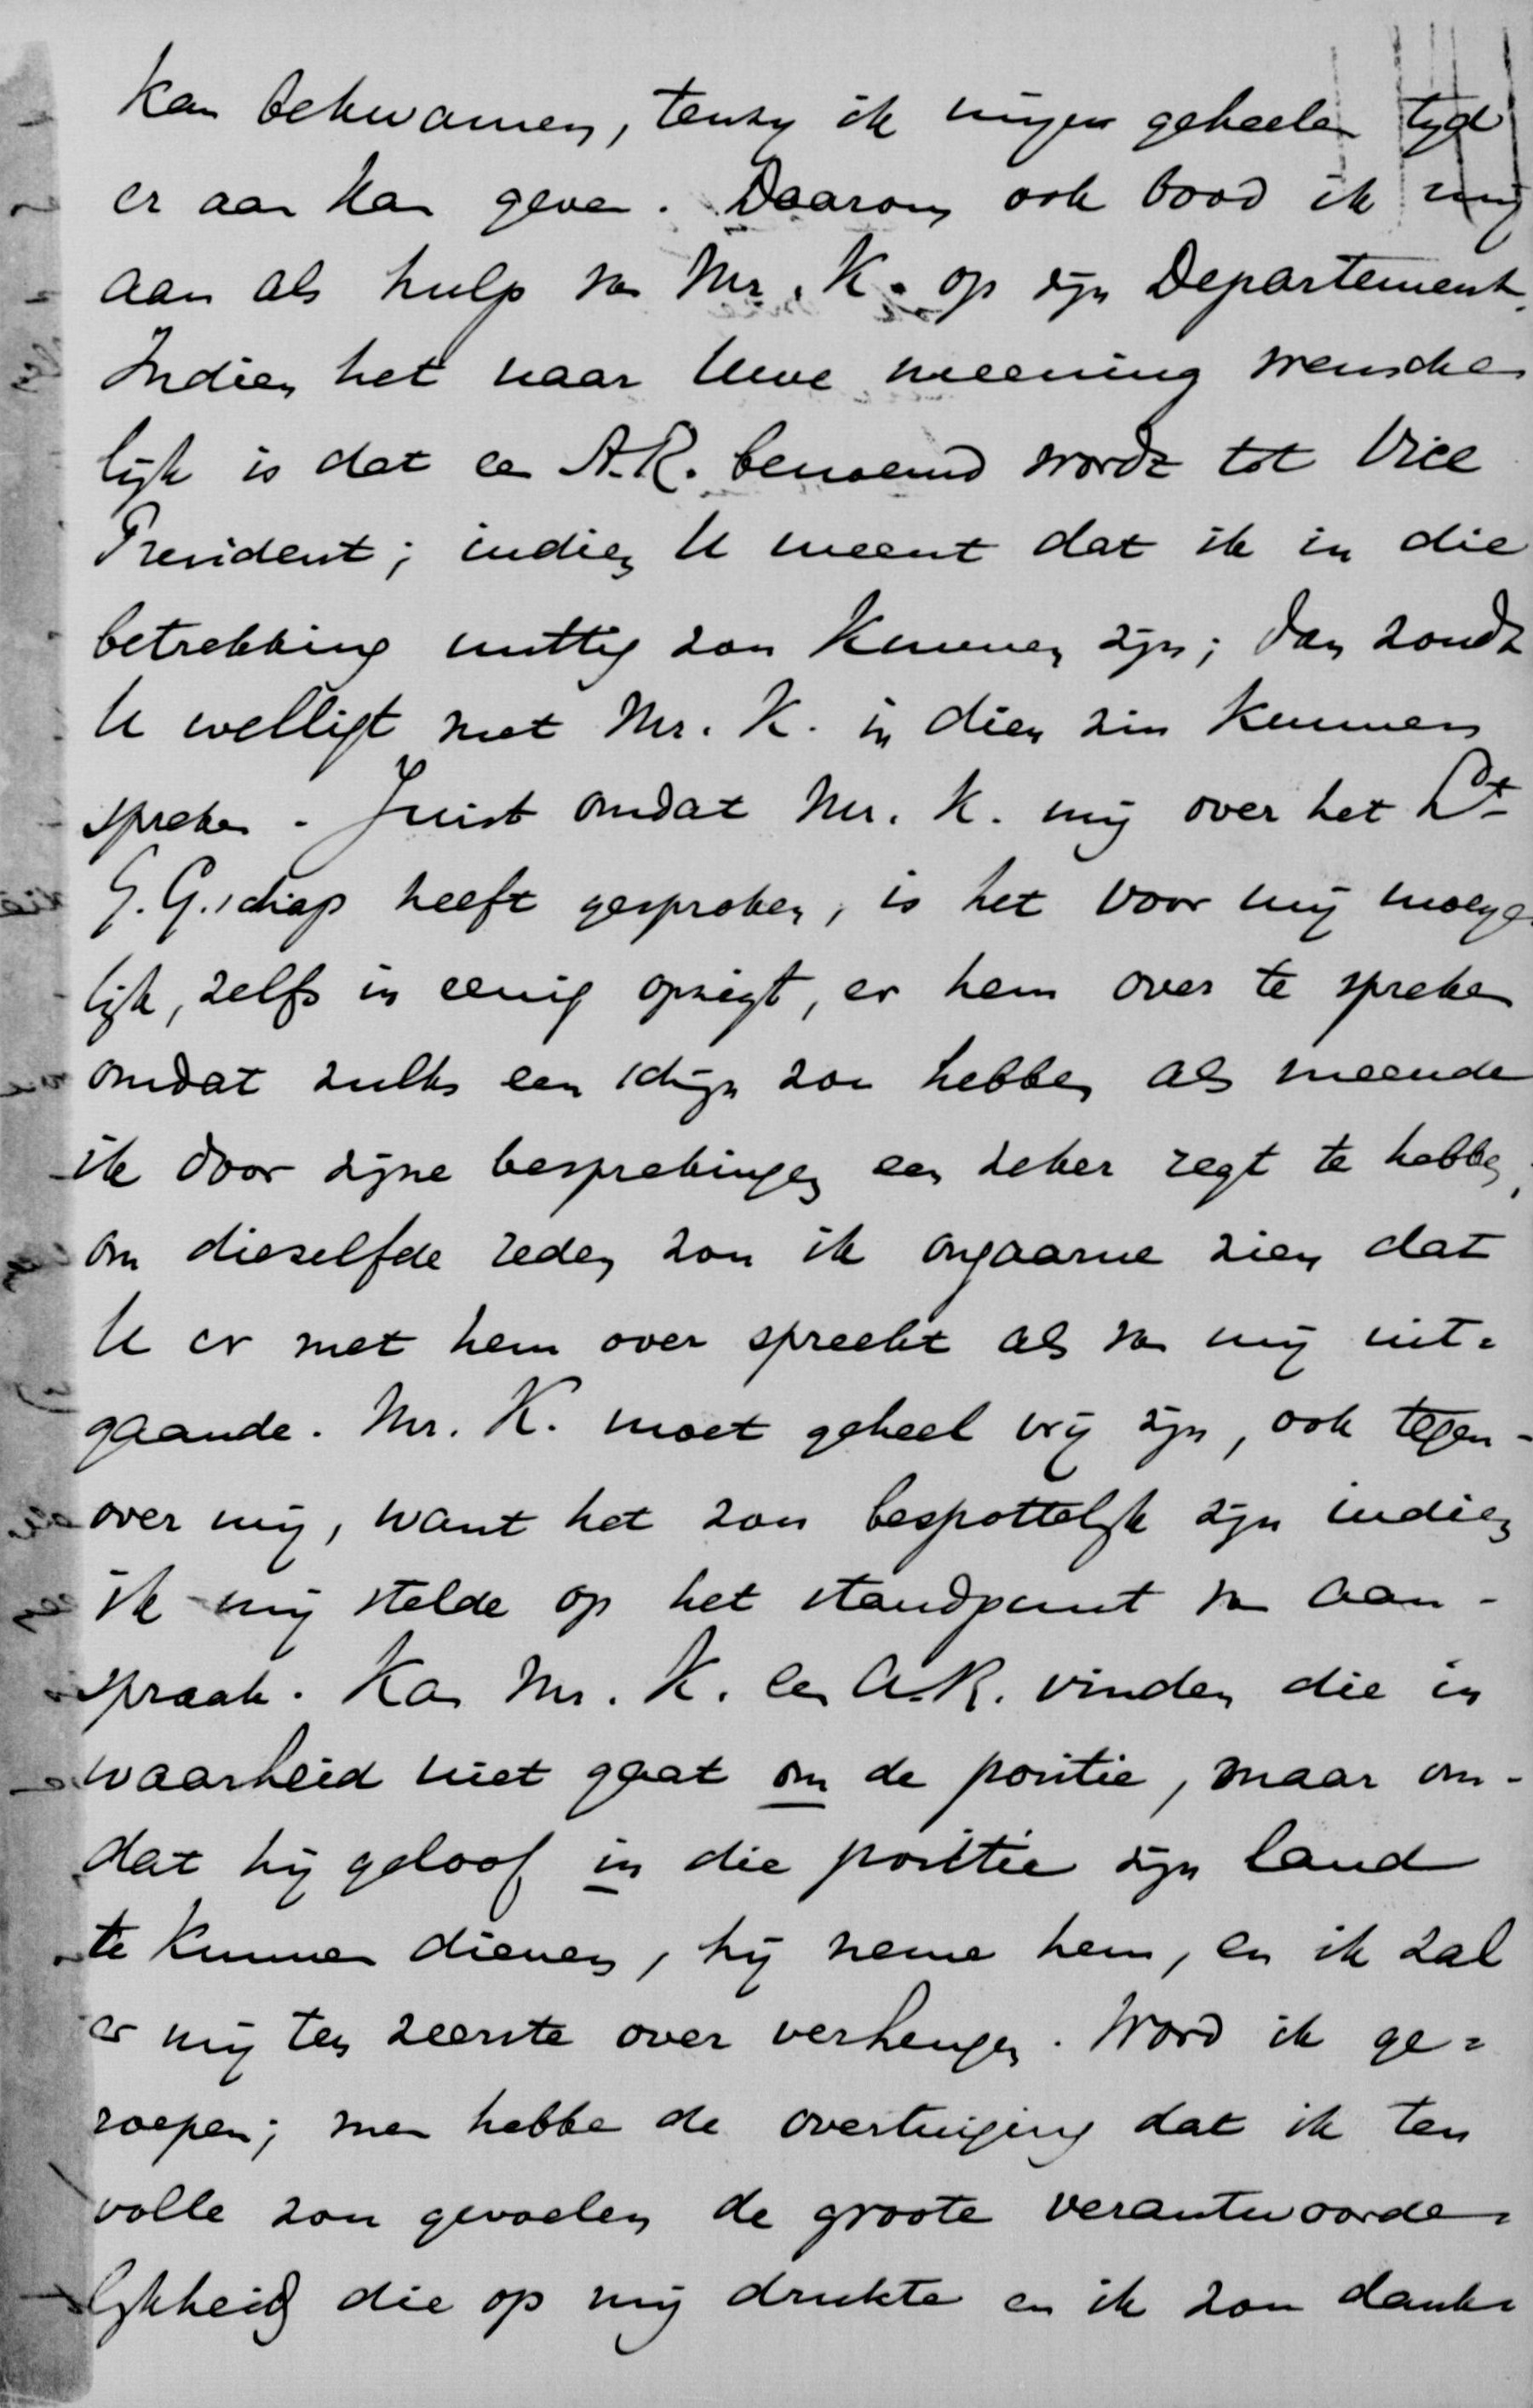 kan bekwamen, tenzy ik mijnen geheelen tyd
er aan kan geven. Daarom ook bood ik mij
aan als hulp van Mr. K. op zijn Departement.
Indien het naar Uwe meening wensche
lijk is dat een A.R. benoemd wordt tot Vice
President; indien U meent dat ik in die
betrekking nuttig zou kunnen zijn; dan zoudt
U welligt met Mr. K. in dien zin kunnen
spreken. Juist omdat Mr. K. mij over het Lt
G.G.schap heeft gesproken, is het voor mij moeye
lijk, zelfs in eenig opzigt, er hem over te spreken
omdat zulks een schijn zou hebben als meende
ik door zijne besprekingen een zeker regt te hebben,
om diezelfde reden zou ik ongaarne zien dat
U er met hem over spreekt als van mij uit=
gaande. Mr. K. moet geheel vrij zijn, ook tegen-
over mij, want het zou bespottelijk zijn indien
ik mij stelde op het standpunt van aan-
spraak. Kan Mr. K. een A.R. vinden die in
waarheid niet gaat om de positie, maar om-
dat hij geloof in die positie zijn land
te kunnen dienen, hij neme hem, en ik zal
er mij ten zeerste over verheugen. Word ik ge=
roepen; men hebbe de overtuiging dat ik ten
volle zou gevoelen de groote verantwoorde=
lijkheid die op mij drukte en ik zou dank=